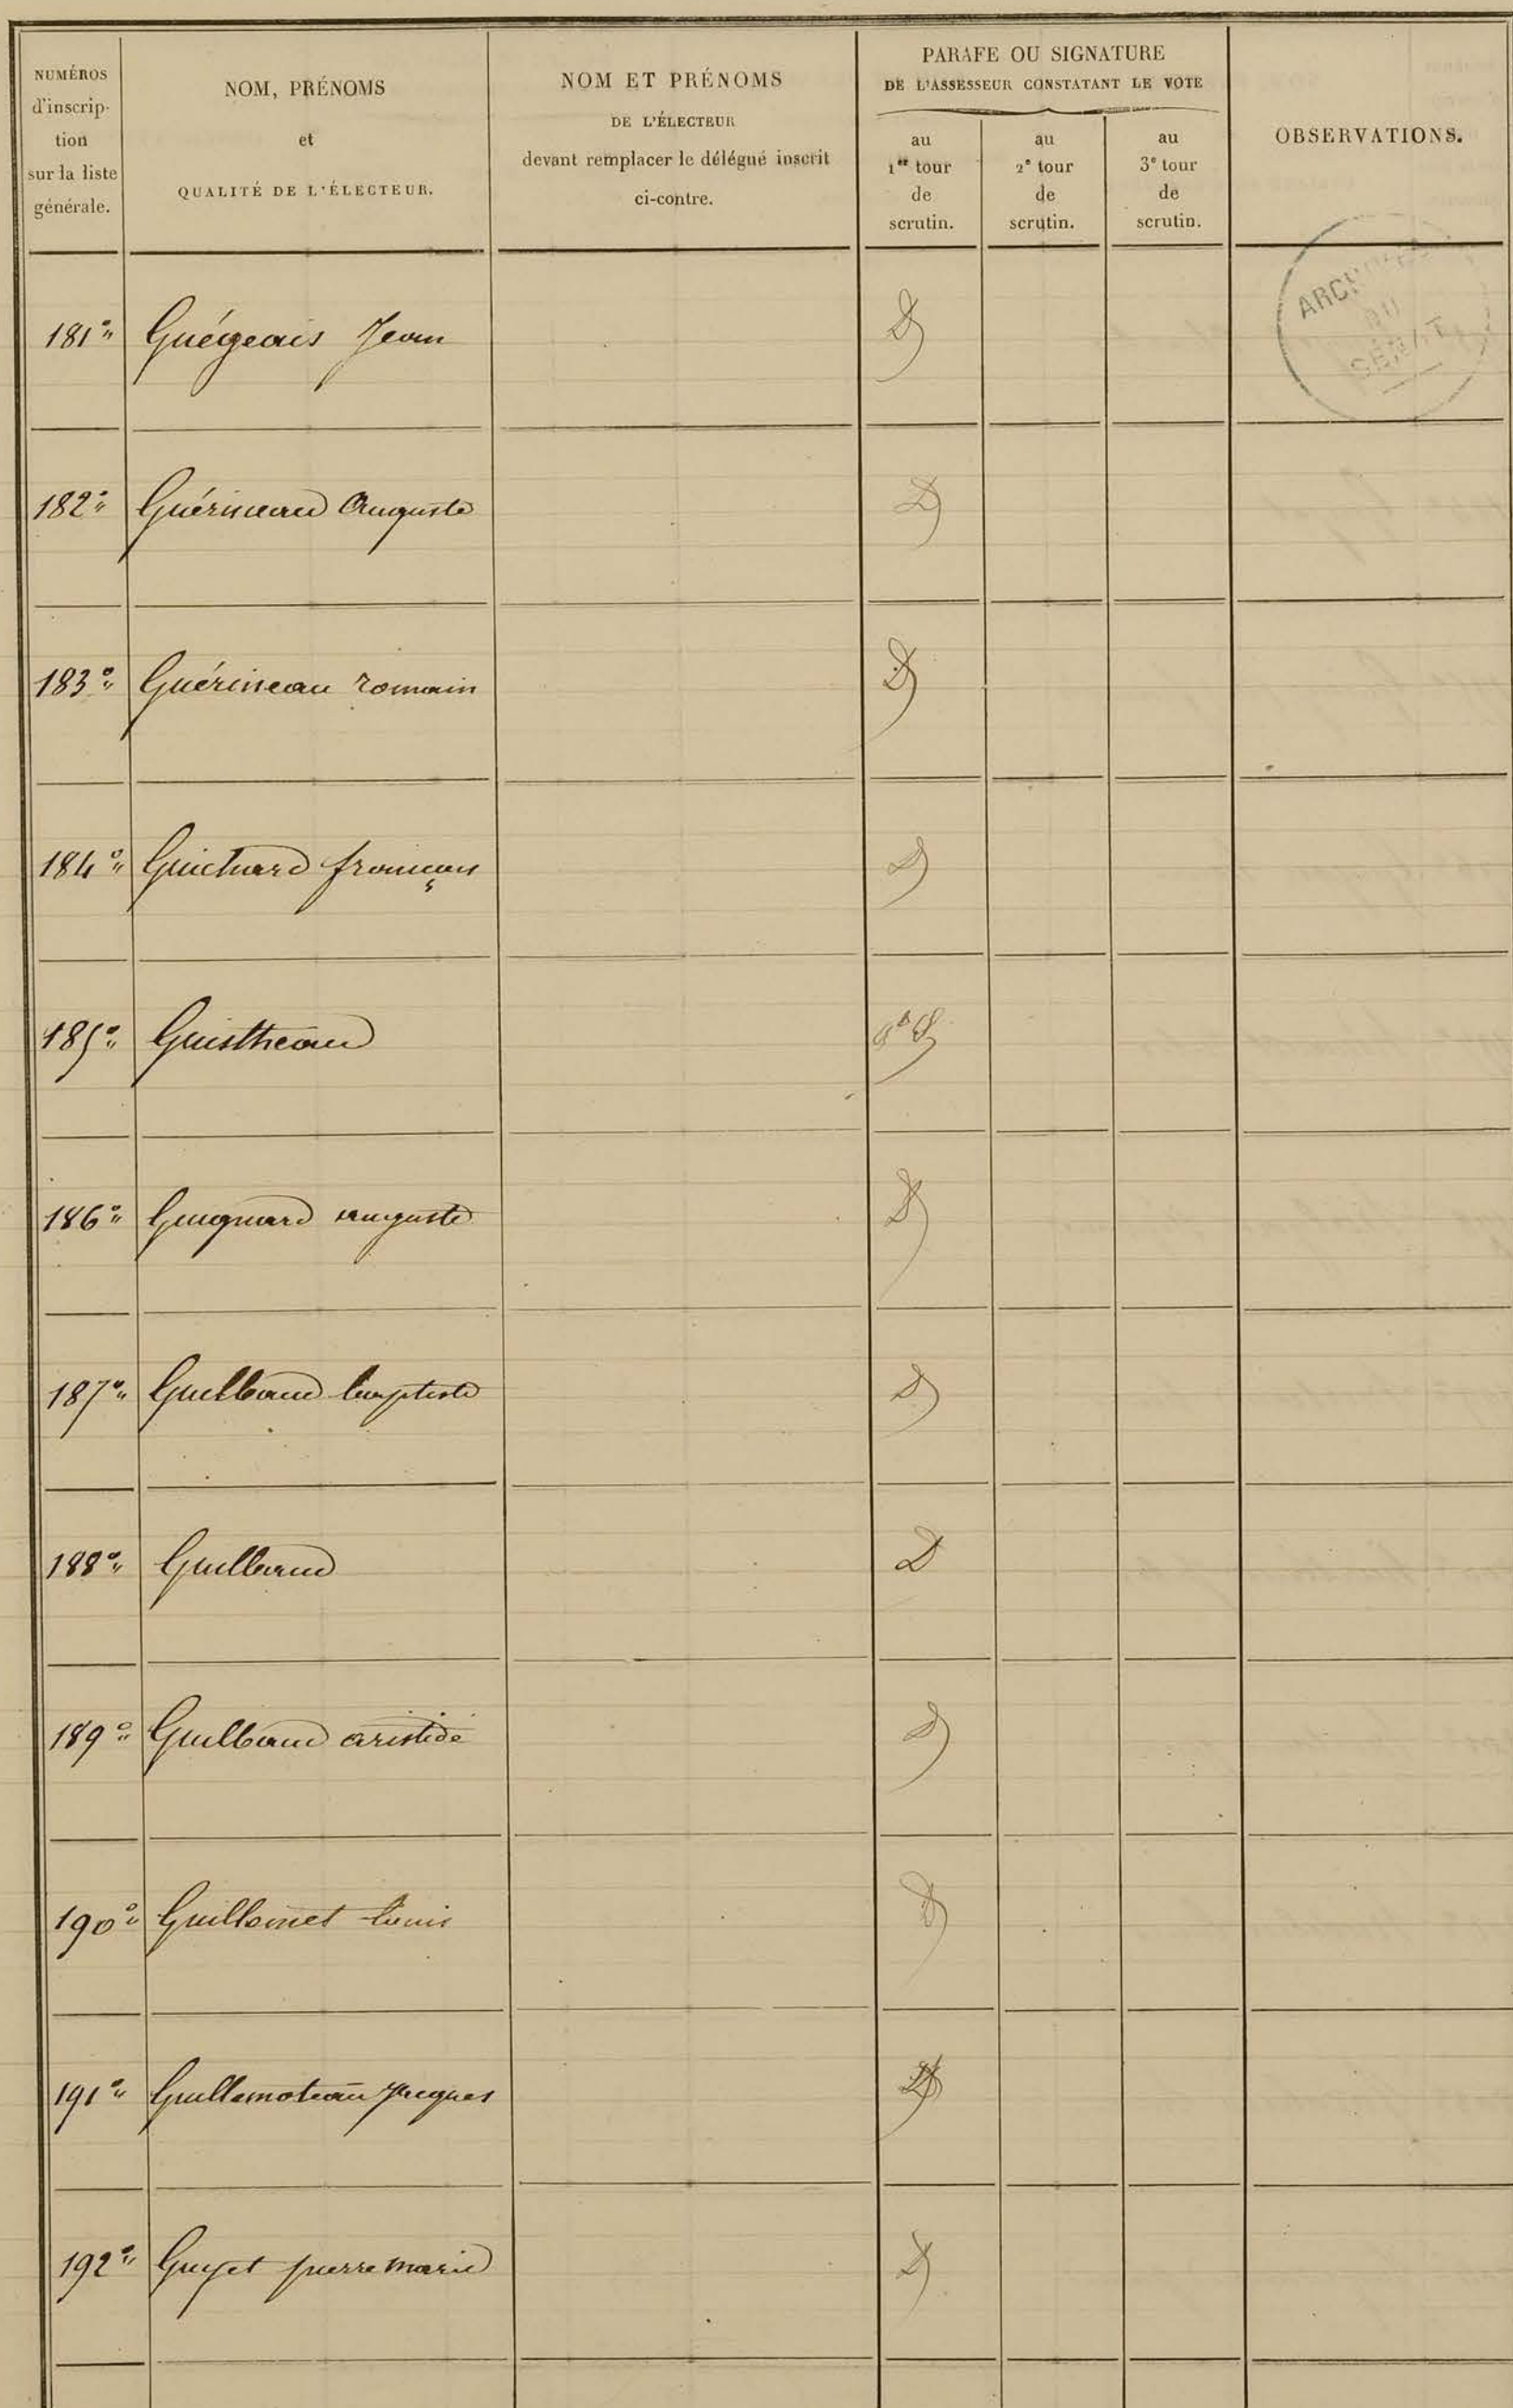 NUMÉROS
d'inscrip-
tion
sur la liste
générale.
NOM, PRÉNOMS
et
QUALITÉ DE L'ÉLECTEUR.
NOM ET PRÉNOMS
DE L'ÉLECTEUR
devant remplacer le délégué inscrit
ci-contre.
PARAFE OU SIGNATURE
DE L'ASSESSEUR CONSTATANT LE VOTE
au
1er tour
de
scrutin.
au
2e tour
de
scrutin.
au
3e tour
de
scrutin.
OBSERVATIONS.
ARCHIVES
DU
SÉNAT
181° Guégeais Jean D
182° Guérineau Auguste D
183° Guérineau romain D
184° Guichard françois D
185° Guistheau
186° Guignard auguste D
187° Guilbaud baptiste D
188° Guilbaud D
189° Guilbaud aristide D
190° Guillemet Louis D
191° Guillemoteau Jacques D
192° Guyet pierre marie D